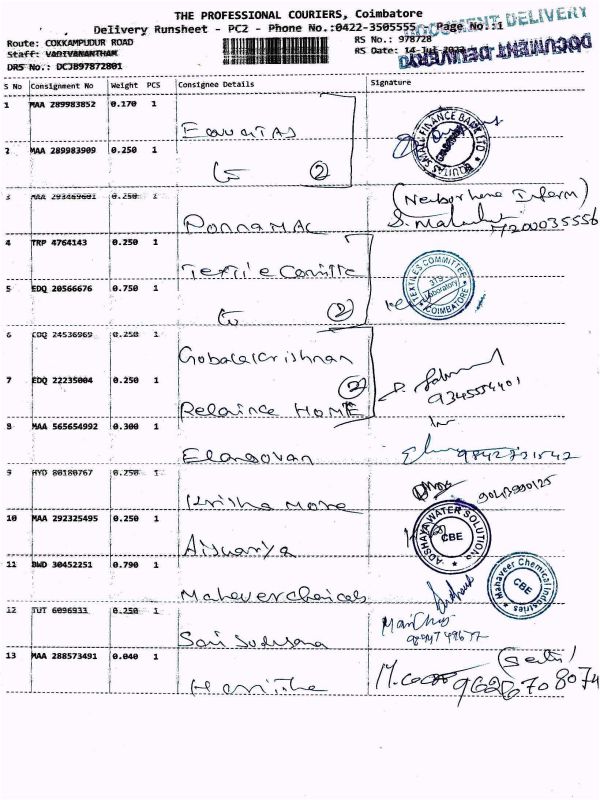 THE PROFESSIONAL COURIERS, Coimbatore
Delivery Runsheet - PC2 - Phone No.:0422-3505555 Page No.:1
DOCUMENT DELIVERY
DOCUMENT DELIVERY
Route: COKKAMPUDUR ROAD
RS No.: 978728
Staff: VADIVANANTHAM
RS Date: 14-Jul-2023
DRS No.: DCJB97872801
S No Consignment No Weight PCS Consignee Details Signature
1 MAA 289983852 0.170 1
Equitas
EQUITAS SMALL FINANCE BANK LTD
2 MAA 289983909 0.250 1
2
3 MAA 293469601 0.250 1
PonnaMAL
S. 7200035556
4 TRP 4764143 0.250 1
Textile Comitte
TEXTILES COMMITTEE Laboratory COIMBATORE
5 EDQ 20566676 0.750 1
2
6 COQ 24536969 0.250 1
Gobalakrishnan
7 EDQ 22235004 0.250 1
2
9345554401
Relaince HOME
8 MAA 565654992 0.300 1
Elangovan
9842731542
9 HYD 80180767 0.250 1
Krisha More
10 MAA 292325495 0.250 1
Aiswarya
ADSHAYA WATER SOLUTIONS CBE
11 BWD 30452251 0.790 1
Mahaver chemicals
Mahaveer Chemical Industries CBE
12 TUT 6096933 0.250 1
Sai Sudusana
13 MAA 288573491 0.040 1
Haritha
9626708074